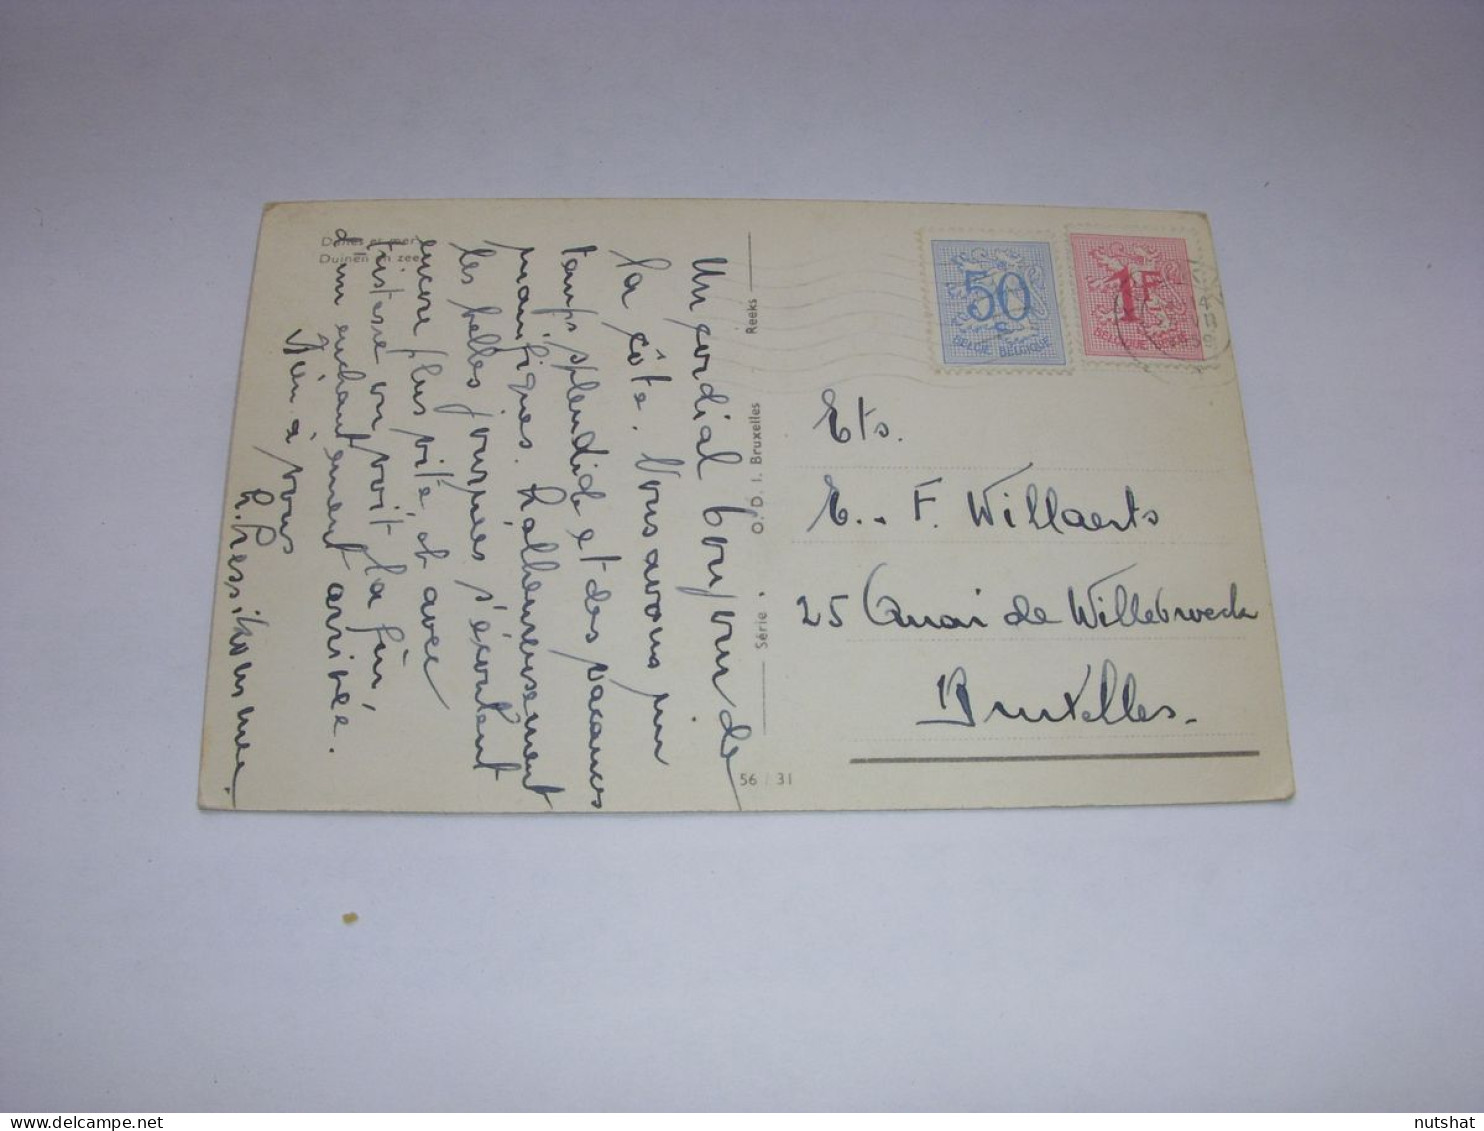 Dunes et mer
Duinen en zee
Un cordial bonjour de
la côte. Nous avons un
temps splendide et des vacances
magnifiques. Malheureusement
les belles journées s'écoulent
encore plus vite, et avec
tristesse on voit la fin,
d'un enchantement arrivée.
Bien à vous
Série
O. D. I. Bruxelles
Reeks
56 / 31
50
c
BELGIE BELGIQUE
1F
Ets.
E. F. Willaerts
25 Quai de Willebroeck
Bruxelles.
nutshat
delcampe.net